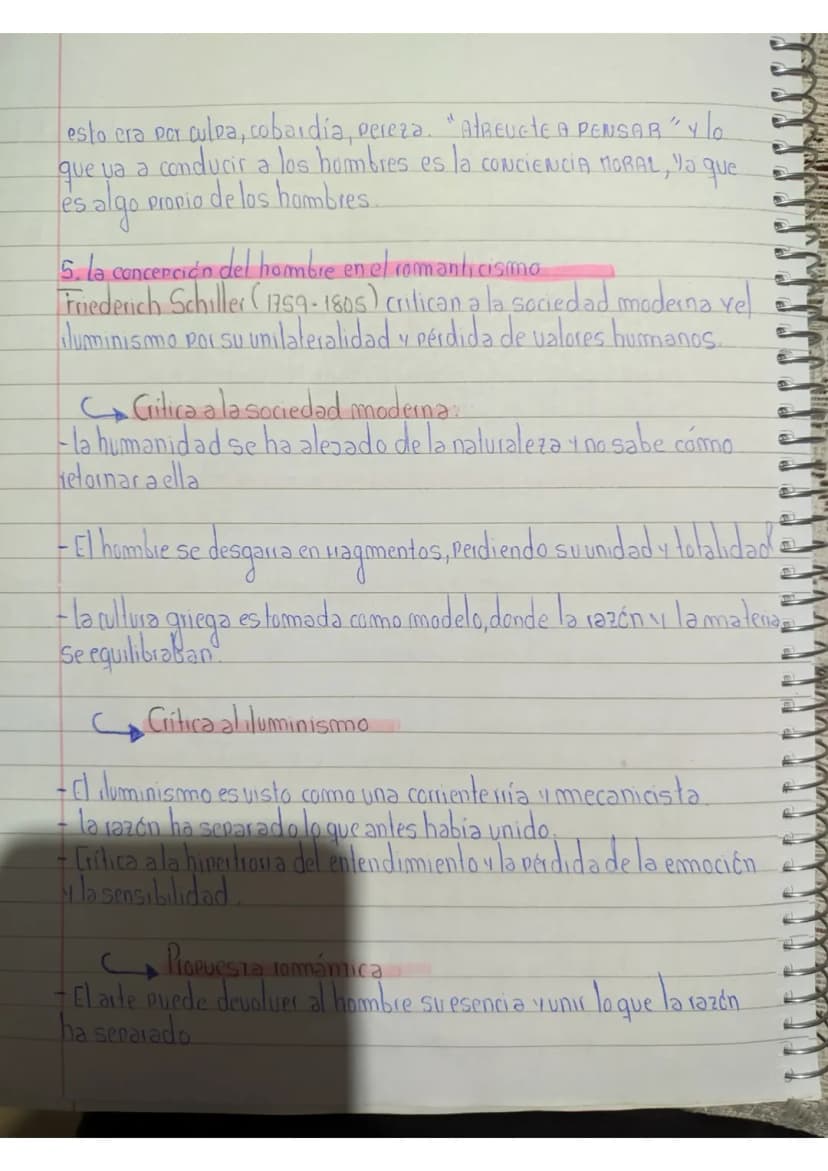 esto era por culpa, cobardía, pereza. "ATREVETE A PENSAR" y lo
que va a conducir a los hombres es la CONCIENCIA MORAL, Ya que
es algo propio de los hombres.
5. la concepción del hombre en el romanticismo
Friederich Schiller (1759-1805) critican a la sociedad moderna y el
iluminismo por su unilateralidad y pérdida de valores humanos.
Crítica a la sociedad moderna:
- la humanidad se ha alejado de la naturaleza y no sabe cómo
retornar a ella
- El hombre se desgarra en fragmentos, perdiendo su unidad y totalidad
- la cultura griega es tomada como modelo, donde la razón y la materia
se equilibraban.
Crítica al iluminismo
- El iluminismo es visto como una corriente fría y mecanicista
- la razón ha separado lo que antes había unido.
- Crítica a la hipertrofia del entendimiento y la pérdida de la emoción
y la sensibilidad.
Propuesta romántica
- El arte puede devolver al hombre su esencia y unir lo que la razón
ha separado